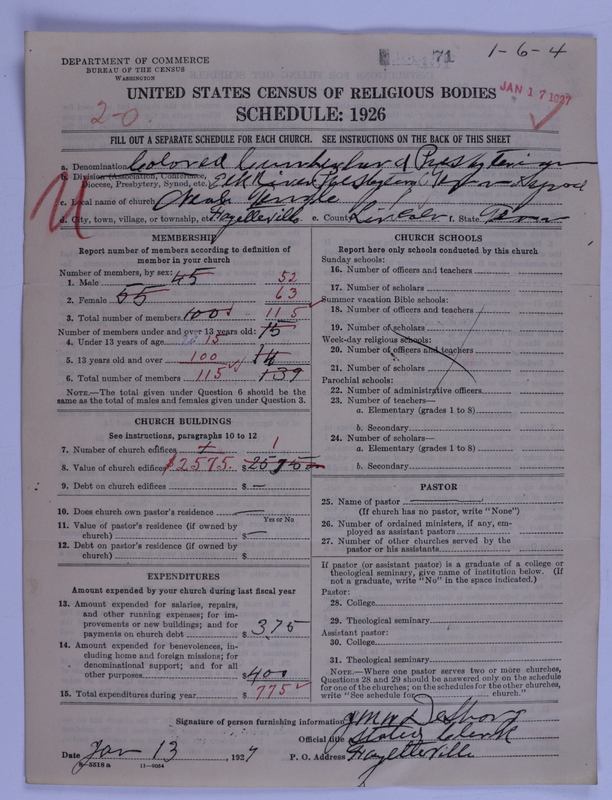 71
1-6-4
DEPARTMENT OF COMMERCE
BUREAU OF THE CENSUS
WASHINGTON
JAN 17 1927
UNITED STATES CENSUS OF RELIGIOUS BODIES
2-0
SCHEDULE: 1926
FILL OUT A SEPARATE SCHEDULE FOR EACH CHURCH. SEE INSTRUCTIONS ON THE BACK OF THIS SHEET
a. Denomination Colored Cumberland Presbyterian
b. Division (Association, Conference, Diocese, Presbytery, Synod, etc. Elk River Presbytery Synod
c. Local name of church Temple
d. City, town, village, or township, etc. Fayetteville e. County Lincoln f. State Tenn
MEMBERSHIP
Report number of members according to definition of
member in your church
Number of members, by sex:
1. Male 45 52
2. Female 55 63
3. Total number of members 100 115
Number of members under and over 13 years old: 15
4. Under 13 years of age 15
5. 13 years old and over 100
6. Total number of members 115 139
NOTE.—The total given under Question 6 should be
the same as the total of males and females given under Question 3.
CHURCH BUILDINGS
See instructions, paragraphs 10 to 12
7. Number of church edifices 1
8. Value of church edifices $2575. $2575
9. Debt on church edifices $ —
10. Does church own pastor's residence? —
Yes or No
11. Value of pastor's residence (if owned by
church) $ —
12. Debt on pastor's residence (if owned by
church) $
EXPENDITURES
Amount expended by your church during last fiscal year
13. Amount expended for salaries, repairs,
and other running expenses; for im-
provements or new buildings; and for
payments on church debt $ 375
14. Amount expended for benevolences, in-
cluding home and foreign missions; for
denominational support; and for all
other purposes $400
15. Total expenditures during year $ 775
CHURCH SCHOOLS
Report here only schools conducted by this church
Sunday schools:
16. Number of officers and teachers
17. Number of scholars
Summer vacation Bible schools:
18. Number of officers and teachers
19. Number of scholars
Week-day religious schools:
20. Number of officers and teachers
21. Number of scholars
Parochial schools:
22. Number of administrative officers
23. Number of teachers—
a. Elementary (grades 1 to 8)
b. Secondary
24. Number of scholars—
a. Elementary (grades 1 to 8)
b. Secondary
PASTOR
25. Name of pastor
(If church has no pastor, write "None")
26. Number of ordained ministers, if any, em-
ployed as assistant pastors
27. Number of other churches served by the
pastor or his assistants
If pastor (or assistant pastor) is a graduate of a college or
theological seminary, give name of institution below. (If
not a graduate, write "No" in the space indicated.)
Pastor:
28. College
29. Theological seminary
Assistant pastor:
30. College
31. Theological seminary
NOTE.—Where one pastor serves two or more churches,
Questions 28 and 29 should be answered only on the schedule
for one of the churches; on the schedules for the other churches,
write "See schedule for church."
Signature of person furnishing information
Official title Stated Clerk
Date Jan 13, 1927 P. O. Address Fayetteville
8-5518 a 11-9064